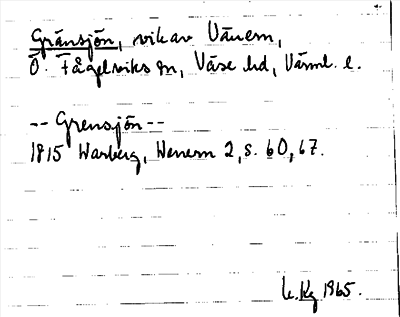 Gränsjön, vik av Vänern,
Ö. Fågelviks sn, Väse hd, Värml. l.
-- Grensjön --
1815 Warberg, Wenern 2, s. 60, 67.
Kg 1965.